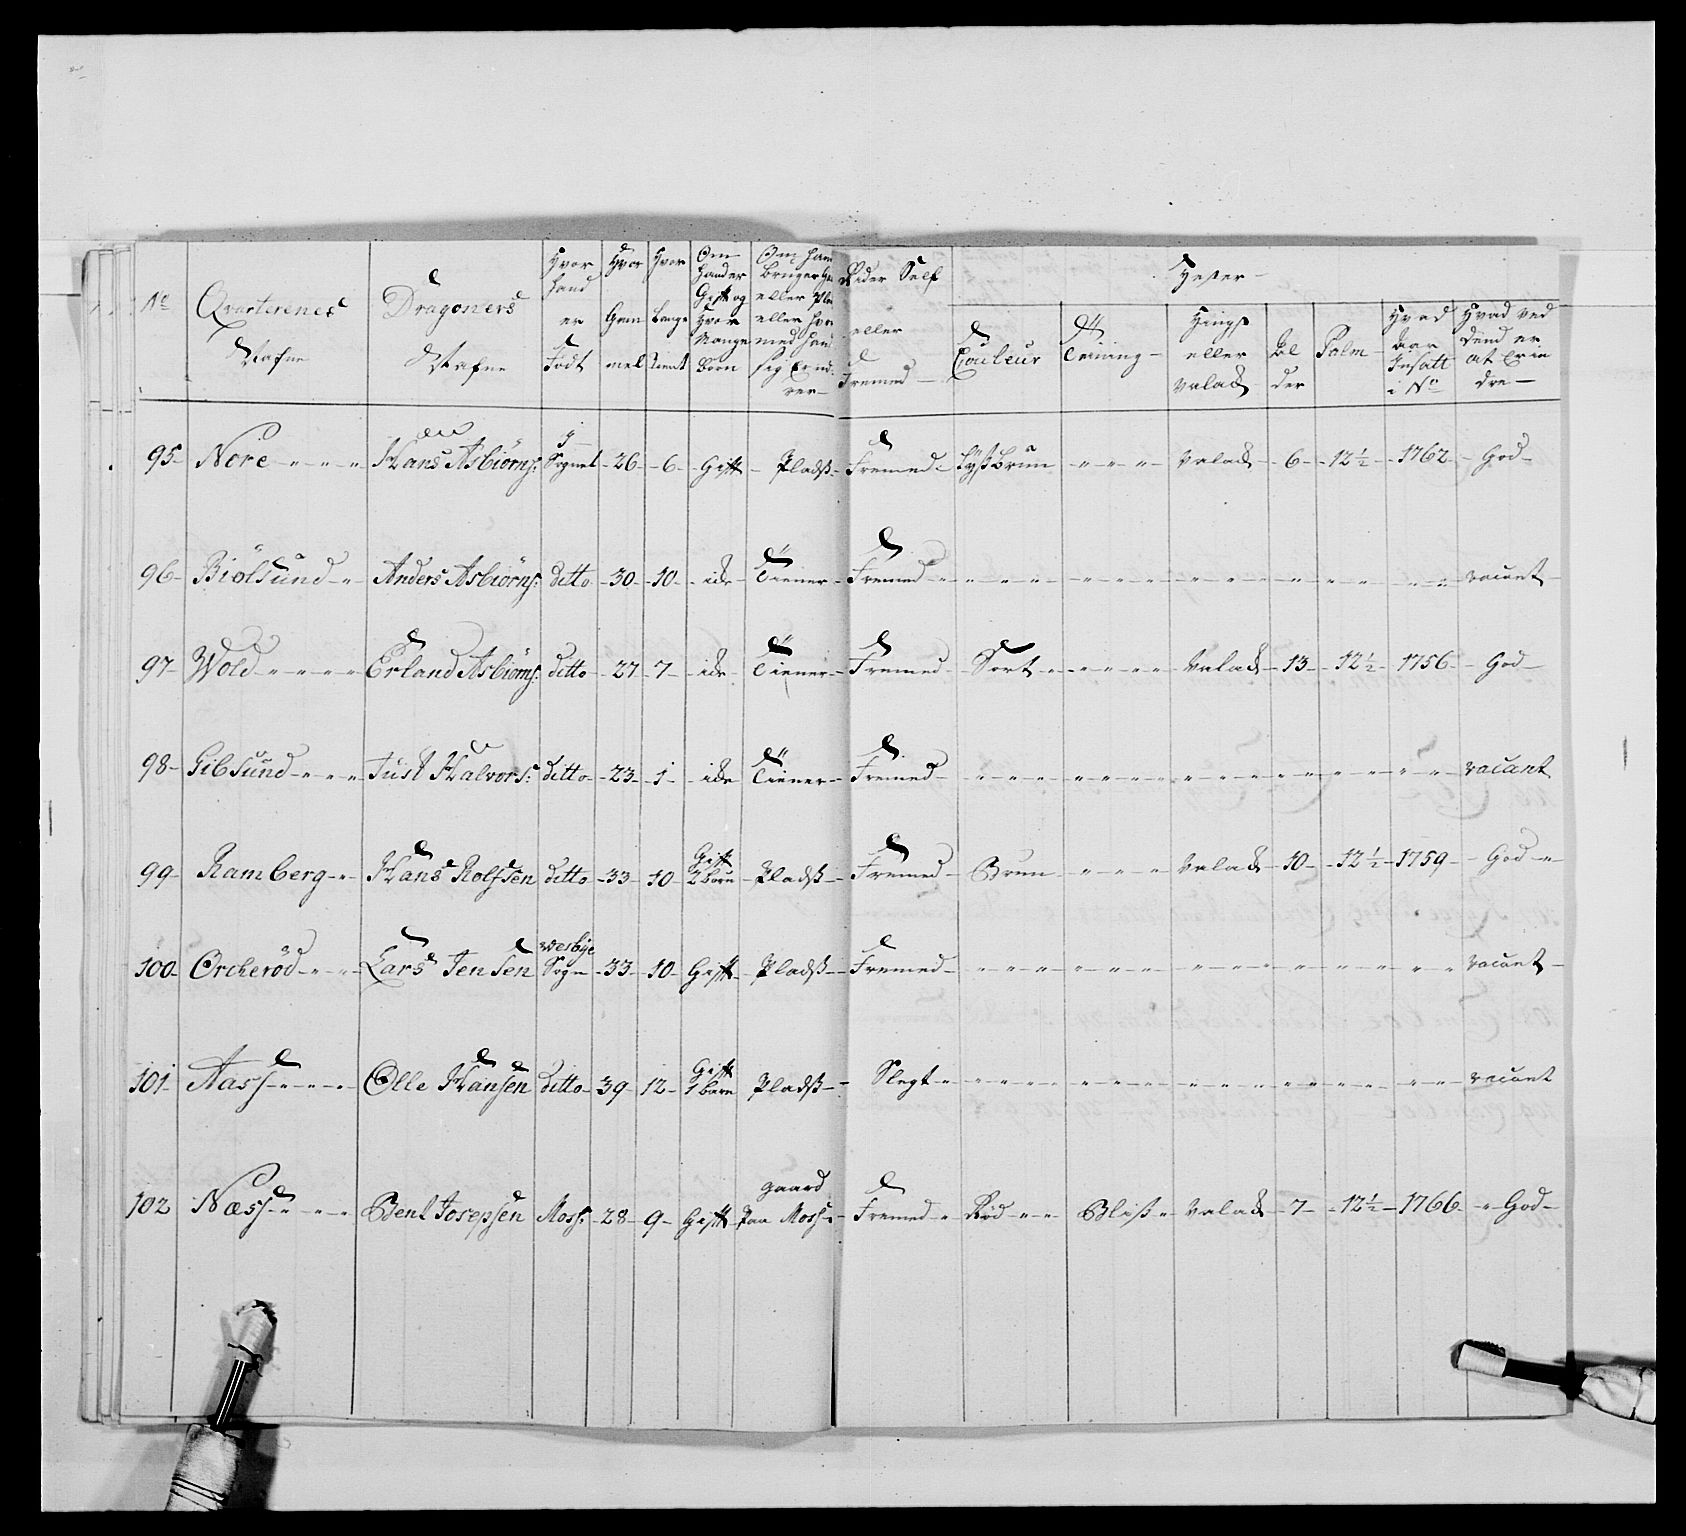 No
Qvarterenes
Nafne
Dragoners
Nafne
Hvor
hand
er
Födt
Hvor
Gam
mel
Hvor
Lenge
tient
Om
hand er
Gift og
Hvor
Mange
Börn
Om han
bruger
eller
eller
med
sig
Rider Self
eller
Fremed
Hester
Couleur
Teining
Hingst
eller
valack
Al
der
Palm
Hvad
Aar
Insatt
i No
Hvad ved
dend er
at Erin
dre
95 Nore Hans Asbiörns: i Sognet 26 6 Gift Pladß Fremed Lyß Brun valack 6 12½ 1762 God
96 Biölsund Anders Asbiörns: ditto 30 10 ide Tiener Fremed vacant
97 Wold Erland Asbiörns: ditto 27 7 ide Tiener Fremed Sort valack 13 12½ 1756 God
98 Gibsund Just Halvors: ditto 23 1 ide Tiener Fremed vacant
99 Ramberg Hans Rolfsen ditto 33 10 Gift 2 börn Pladß Fremed Brun valack 10 12½ 1759 God
100 Orcheröd Lars Jensen wesbye Sogn 33 10 Gift Pladß Fremed vacant
101 Aass Olle Hansen ditto 39 12 Gift 1 barn Pladß Slegt vacant
102 Næss Bent Josepsen Moss: 28 9 Gift gaard Paa Moss Fremed Röd Bliß valack 7 12½ 1766 God